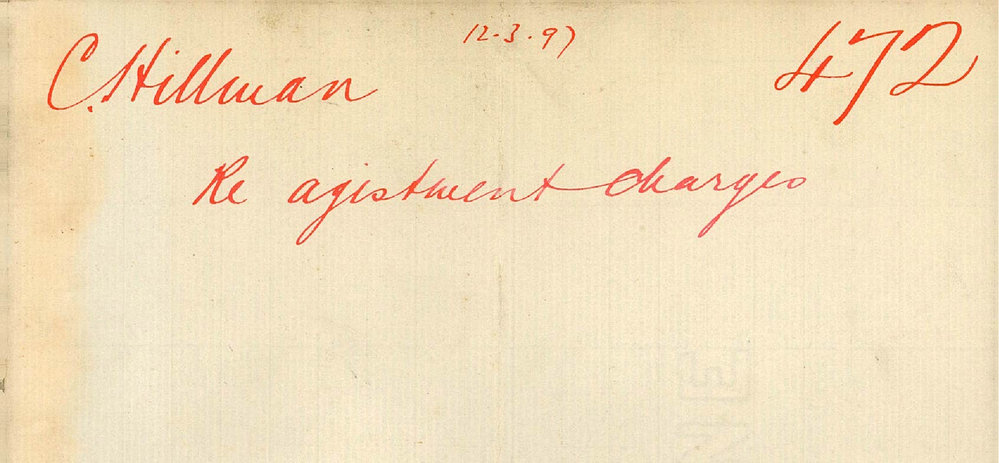 12.3.97
C. Hillman 472
Re agistment charges